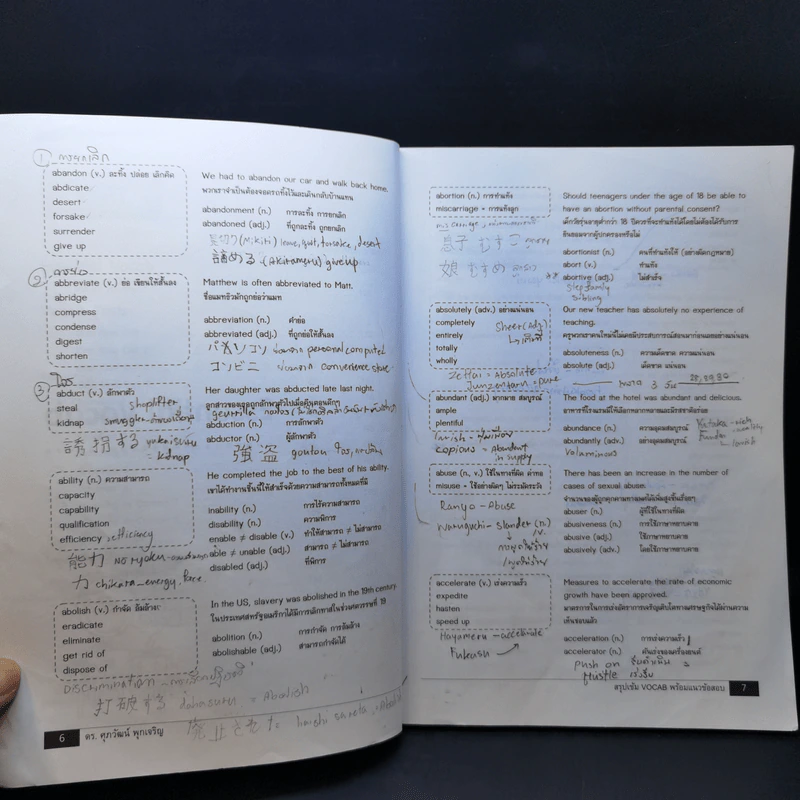 ① การยกเลิก
abandon (v.) ละทิ้ง ปล่อย เลิกคิด
abdicate
desert
forsake
surrender
give up
We had to abandon our car and walk back home.
พวกเราจำเป็นต้องจอดรถทิ้งไว้และเดินกลับบ้านแทน
abandonment (n.) การละทิ้ง การยกเลิก
abandoned (adj.) ที่ถูกละทิ้ง ถูกยกเลิก
(Mikiri) leave, quit, forsake, desert
諦める (Akirameru) give up
② การย่อ
abbreviate (v.) ย่อ เขียนให้สั้นลง
abridge
compress
condense
digest
shorten
Matthew is often abbreviated to Matt.
ชื่อแมทธิวมักถูกย่อว่าแมท
abbreviation (n.) คำย่อ
abbreviated (adj.) ที่ถูกย่อให้สั้นลง
パソコン ย่อมาจาก personal computer
コンビニ ย่อมาจาก convenience store
③ โจร
abduct (v.) ลักพาตัว
steal shoplifter
kidnap smuggler
誘拐する yukaisuru = kidnap
Her daughter was abducted late last night.
ลูกสาวของเธอถูกลักพาตัวไปเมื่อคืนตอนดึกๆ
guerrilla
abduction (n.) การลักพาตัว
abductor (n.) ผู้ลักพาตัว
強盗 goutou โจร,
ability (n.) ความสามารถ
capacity
capability
qualification
efficiency efficiency
能力 noryoku
力 chikara energy, force
He completed the job to the best of his ability.
เขาได้ทำงานชิ้นนี้ให้สำเร็จด้วยความสามารถทั้งหมดที่มี
inability (n.) การไร้ความสามารถ
disability (n.) ความพิการ
enable ≠ disable (v.) ทำให้สามารถ ≠ ไม่สามารถ
able ≠ unable (adj.) สามารถ ≠ ไม่สามารถ
disabled (adj.) ที่พิการ
abolish (v.) กำจัด ล้มล้าง
eradicate
eliminate
get rid of
dispose of
In the US, slavery was abolished in the 19th century.
ในประเทศสหรัฐอเมริกาได้มีการเลิกทาสในช่วงศตวรรษที่ 19
abolition (n.) การกำจัด การล้มล้าง
abolishable (adj.) สามารถกำจัดได้
Discrimination
打破する dahasuru = Abolish
廃止 haishi
6 ดร. ศุภวัฒน์ พุกเจริญ
abortion (n.) การทำแท้ง
miscarriage = การแท้งลูก
miscarriage,
息子 むすこ ลูกชาย
娘 むすめ ลูกสาว
Should teenagers under the age of 18 be able to
have an abortion without parental consent?
เด็กวัยรุ่นอายุต่ำกว่า 18 ปีควรที่จะทำแท้งได้โดยไม่ต้องได้รับการ
ยินยอมจากผู้ปกครองหรือไม่
abortionist (n.) คนที่ทำแท้งให้ (อย่างผิดกฎหมาย)
abort (v.) ทำแท้ง
abortive (adj.) ไม่สำเร็จ
stepfamily
sibling
absolutely (adv.) อย่างแน่นอน
completely
entirely
totally
wholly
Sheer (adj.)
Zettai = Absolute
Junzentaru = pure
Our new teacher has absolutely no experience of
teaching.
ครูพวกเราคนใหม่นี้ไม่เคยมีประสบการณ์สอนมาก่อนเลยอย่างแน่นอน
absoluteness (n.) ความเด็ดขาด ความแน่นอน
absolute (adj.) เด็ดขาด แน่นอน
abundant (adj.) มากมาย สมบูรณ์
ample
plentiful
lavish =
copious = Abundant
in supply
The food at the hotel was abundant and delicious.
อาหารที่โรงแรมนี้ให้เลือกหลากหลายและมีรสชาติอร่อย
abundance (n.) ความอุดมสมบูรณ์
abundantly (adv.) อย่างอุดมสมบูรณ์
Voluminous
Yutaka = rich
abuse (n., v.) ใช้ในทางที่ผิด ด่าทอ
misuse = ใช้อย่างผิดๆ ไม่ระมัดระวัง
Ranyo - Abuse
Waruguchi - slander (n.)
การพูดให้ร้าย
There has been an increase in the number of
cases of sexual abuse.
จำนวนของผู้ถูกคุกคามทางเพศได้เพิ่มสูงขึ้นเรื่อยๆ
abuser (n.) ผู้ที่ใช้ในทางที่ผิด
abusiveness (n.) การใช้ภาษาหยาบคาย
abusive (adj.) ใช้ภาษาหยาบคาย
abusively (adv.) โดยใช้ภาษาหยาบคาย
accelerate (v.) เร่งความเร็ว
expedite
hasten
speed up
Hayameru - accelerate
Measures to accelerate the rate of economic
growth have been approved.
มาตรการในการเร่งอัตราการเจริญเติบโตทางเศรษฐกิจได้ผ่านความ
เห็นชอบแล้ว
acceleration (n.) การเร่งความเร็ว
accelerator (n.) คันเร่งของเครื่องยนต์
push on
Hustle เร่งรีบ
สรุปเข้ม VOCAB พร้อมแนวข้อสอบ 7